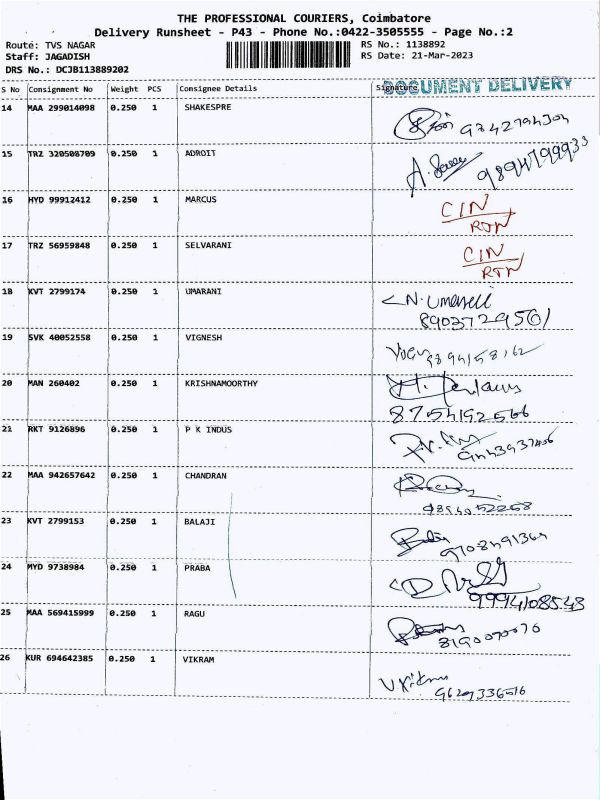 THE PROFESSIONAL COURIERS, Coimbatore
Delivery Runsheet - P43 - Phone No.:0422-3505555 - Page No.:2
Route: TVS NAGAR RS No.: 1138892
Staff: JAGADISH RS Date: 21-Mar-2023
DRS No.: DCJB113889202
DOCUMENT DELIVERY
S No Consignment No Weight PCS Consignee Details Signature
14 MAA 299014098 0.250 1 SHAKESPRE
15 TRZ 320508709 0.250 1 ADROIT
16 HYD 99912412 0.250 1 MARCUS CIN
RTN
17 TRZ 56959848 0.250 1 SELVARANI CIN
RTN
18 KVT 2799174 0.250 1 UMARANI
8903729561
19 SVK 40052558 0.250 1 VIGNESH
9894158162
20 MAN 260402 0.250 1 KRISHNAMOORTHY
8754192566
21 RKT 9126896 0.250 1 P K INDUS
22 MAA 942657642 0.250 1 CHANDRAN
9894052268
23 KVT 2799153 0.250 1 BALAJI
24 MYD 9738984 0.250 1 PRABA
9994108548
25 MAA 569415999 0.250 1 RAGU
26 KUR 694642385 0.250 1 VIKRAM
9629336516